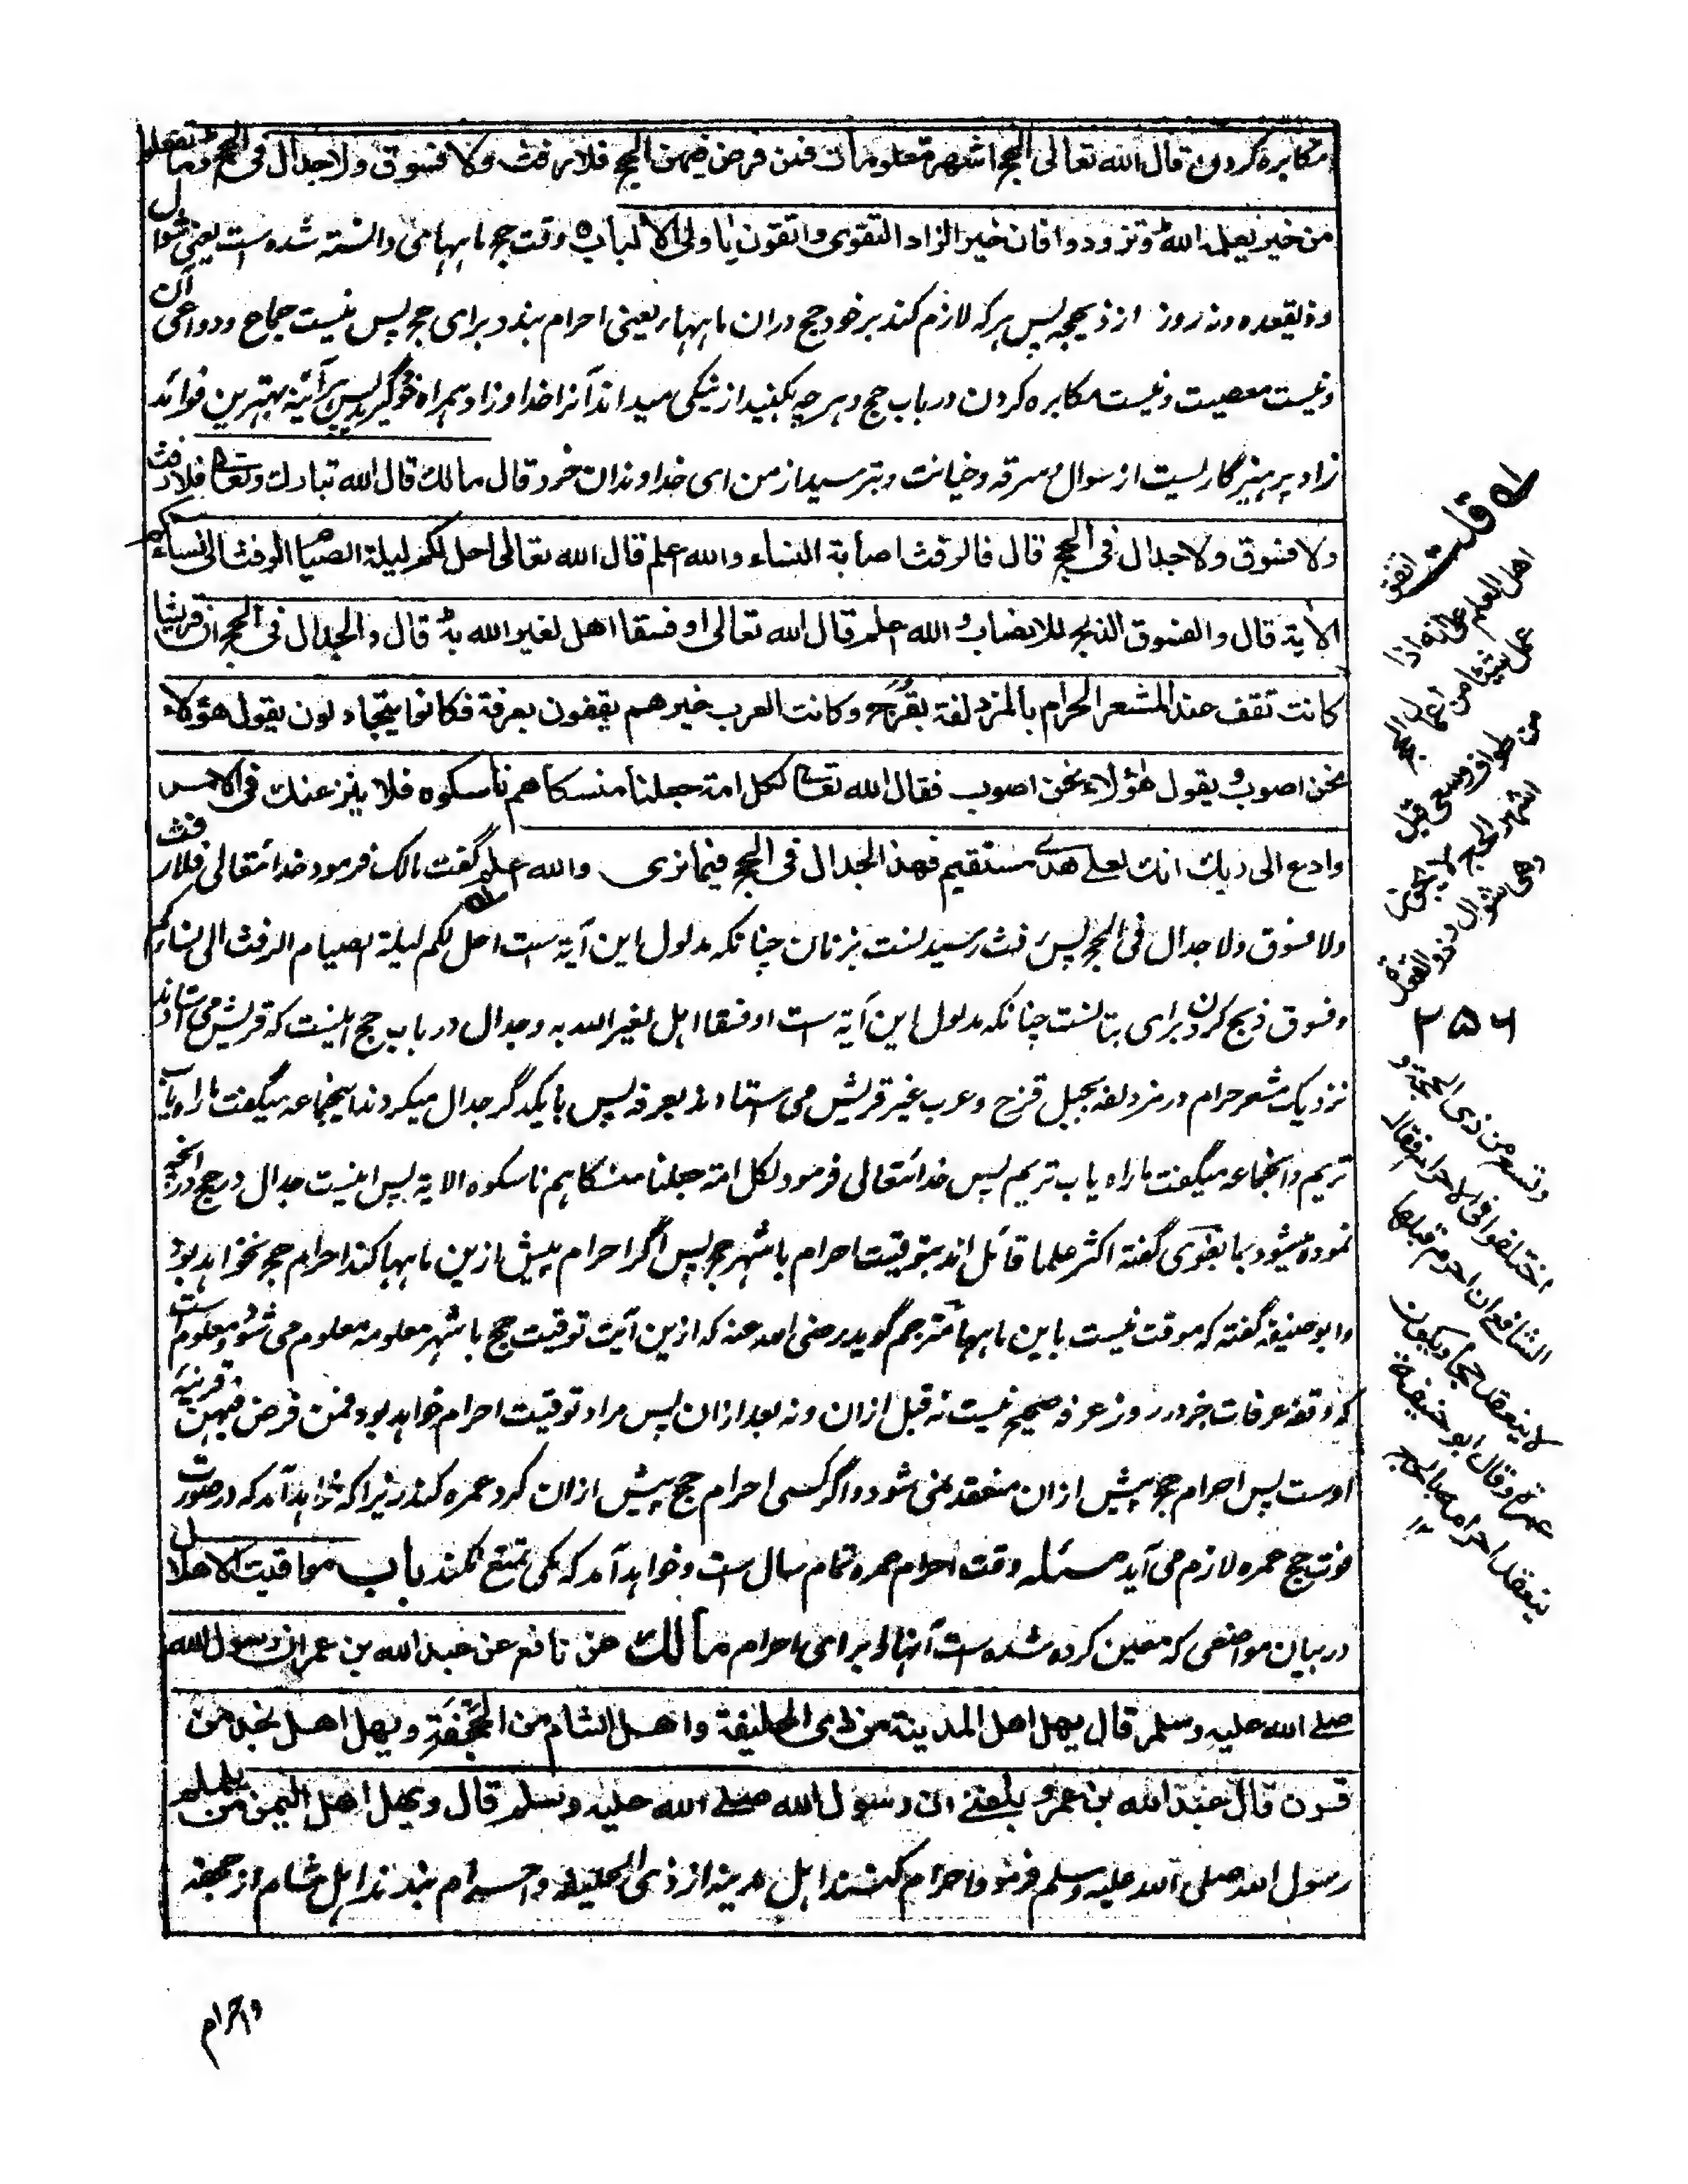 مکابره کردن قال الله تعالی الحج اشهر معلومات فمن فرض فیهن الحج فلا رفث ولا فسوق ولا جدال فی الحج وما تفعلوا
من خیر یعلمه الله وتزودوا فان خیر الزاد التقوی واتقون یا ولی الالباب ه وقت حج ماههای دانسته شده ست یعنی شوال
و ذیقعده و نه روز از ذیحجه پس هر که لازم کند بر خود حج دران ماهها یعنی احرام بندد برای حج پس نیست جماع و دواعی آن
و نیست معصیت و نیست مکابره کردن در باب حج و هر چه بکنید از نیکی میداند آنرا خدا و زاد همراه خود گیرید پس هر آئینه بهترین فوائد
زاد پرهیزگاریست از سوال و سرقه و خیانت و بترسید از من ای خداوندان خرد قال مالك قال الله تبارك وتعالی فلا رفث
ولا فسوق ولا جدال فی الحج قال فالرفث اصابة النساء والله اعلم قال الله تعالی احل لکم لیلة الصیام الرفث الی نسائکم
الآیة قال والفسوق الذبح للانصاب والله اعلم قال الله تعالی او فسقا اهل لغیر الله به قال والجدال فی الحج ان قریشا
کانت تقف عند المشعر الحرام بالمزدلفة بقزح وکانت العرب غیرهم یقفون بعرفة فکانوا یتجادلون یقول هؤلاء
نحن اصوب ویقول هؤلاء نحن اصوب فقال الله تعالی لکل امة جعلنا منسکا هم ناسکوه فلا ینزعنك فی الامر
وادع الی ربك انك لعلی هدی مستقیم فهذا الجدال فی الحج فیما نری والله اعلم گفت مالک فرمود خدا تعالی فلا رفث
ولا فسوق ولا جدال فی الحج پس رفث رسیدنست بزنان چنانکه مدلول این آیة ست احل لکم لیلة الصیام الرفث الی نسائکم
و فسوق ذبح کردن برای بتانست چنانکه مدلول این آیة ست او فسقا اهل لغیر الله به و جدال در باب حج اینست که قریش می استادند
نزدیک مشعر حرام در مزدلفه بجبل قزح و عرب غیر قریش می استادند بعرفه پس با یکدگر جدال میکردند اینجماعه میگفت ما راه یاب
تریم و آنجماعه میگفت ما راه یاب تریم پس خدا تعالی فرمود لکل امة جعلنا منسکا هم ناسکوه الایة پس اینست جدال در حج در آنچه
نموده میشود بما بغوی گفته اکثر علما قائل اند بتوقیت احرام باشهر حج پس اگر احرام پیش ازین ماهها کند احرام حج نخواهد بود
و ابو حنیفه گفته که موقت نیست باین ماهها مترجم گوید رضی الله عنه که ازین آیت توقیت حج باشهر معلومه معلوم می شود و معلوم ست
که وقفه عرفات جز در روز عرفه صحیح نیست نه قبل ازان و نه بعد ازان پس مراد توقیت احرام خواهد بود و فمن فرض فیهن قرینه
اوست پس احرام حج پیش ازان منعقد نمی شود و اگر کسی احرام حج پیش ازان کرد عمره کند زیرا که خواهد آمد که در صورت
فوت حج عمره لازم می آید مسئله وقت احرام عمره تمام سال ست و خواهد آمد که مکی تمتع نکند باب مواقیت الاهلال
در بیان مواضعی که معین کرده شده ست آنها را برای احرام مالك عن نافع عن عبد الله بن عمر ان رسول الله
صلی الله علیه وسلم قال یهل اهل المدینة من ذی الحلیفة واهل الشام من الجحفة ویهل اهل نجد من
قرن قال عبد الله بن عمر وبلغنی ان رسول الله صلی الله علیه وسلم قال ویهل اهل الیمن من یلملم
رسول الله صلی الله علیه وسلم فرمود احرام کنند اهل مدینه از ذی الحلیفه و احرام بندند اهل شام از جحفه
واحرام
له قلت اتفق
اهل العلم علی انه اذا
عمل شیئا من اعمال الحج
من طواف وسعی قبل
اشهر الحج لا یجزئ
وهی شوال وذو القعدة
۲۵۶
وتسع من ذی الحجة و
اختلفوا فی الاحرام فقال
الشافعی ان احرم قبلها
لا ینعقد حجا ویکون
عمرة وقال ابو حنیفة
ینعقد احرامه بالحج
۱۲